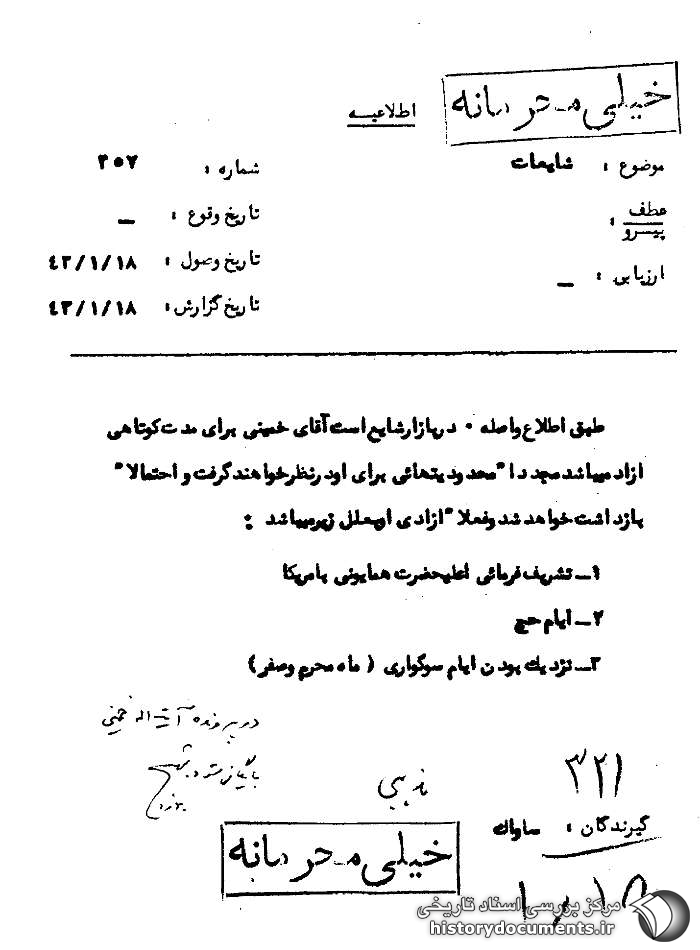 خیلی محرمانه
اطلاعیه
موضوع : شایعات
شماره : ۳۵۷
عطف
پیرو :
تاریخ وقوع : ــ
ارزیابی : ــ
تاریخ وصول : ٤٣/١/١٨
تاریخ گزارش : ٤٣/١/١٨
طبق اطلاع واصله ۰ در بازار شایع است آقای خمینی برای مدت کوتاهی
ازاد میباشد مجددا" محدودیتهائی برای او در نظر خواهند گرفت و احتمالا"
بازداشت خواهد شد و فعلا" ازادی او بعلل زیر میباشد :
۱ــ تشریف فرمائی اعلیحضرت همایونی بامریکا
۲ــ ایام حج
۳ــ نزدیک بودن ایام سوگواری ( ماه محرم و صفر )
در پرونده آیت اله خمینی
بایگانی شود
۳۲۱
گیرندگان : ساواک
خیلی محرمانه
مرکز بررسی اسناد تاریخی
historydocuments.ir